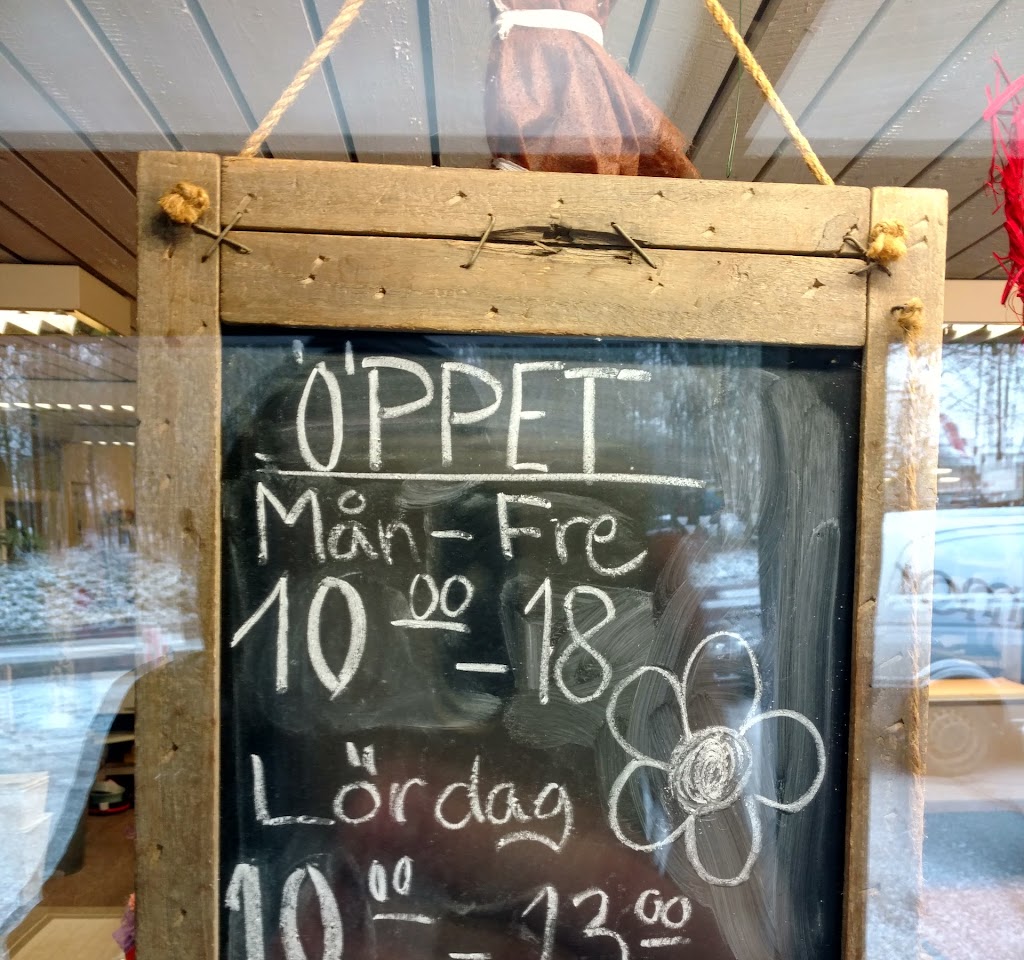 ÖPPET
Mån - Fre
10 00 - 18
Lördag
10 00 - 13 00